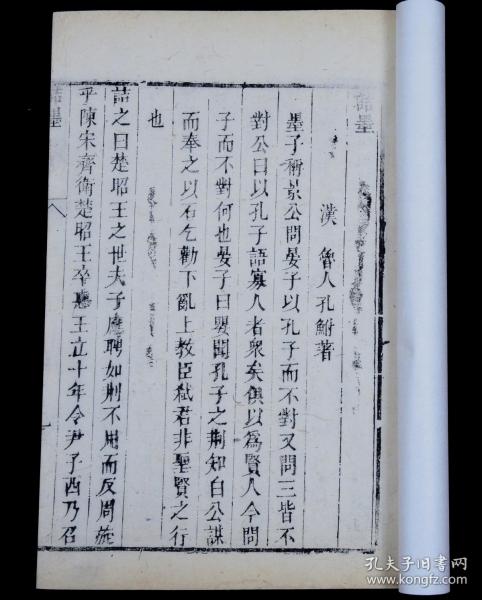 詰墨
漢　魯人孔鮒著
墨子稱景公問晏子以孔子而不對又問三皆不
對公曰以孔子語寡人者衆矣俱以爲賢人今問
子而不對何也晏子曰嬰聞孔子之荆知白公謀
而奉之以石乞勸下亂上教臣弑君非聖賢之行
也
詰之曰楚昭王之世夫子應聘如荆不用而反周旋
乎陳宋齊衛楚昭王卒惠王立十年令尹子西乃召
詰墨
孔夫子旧书网
www.kongfz.com